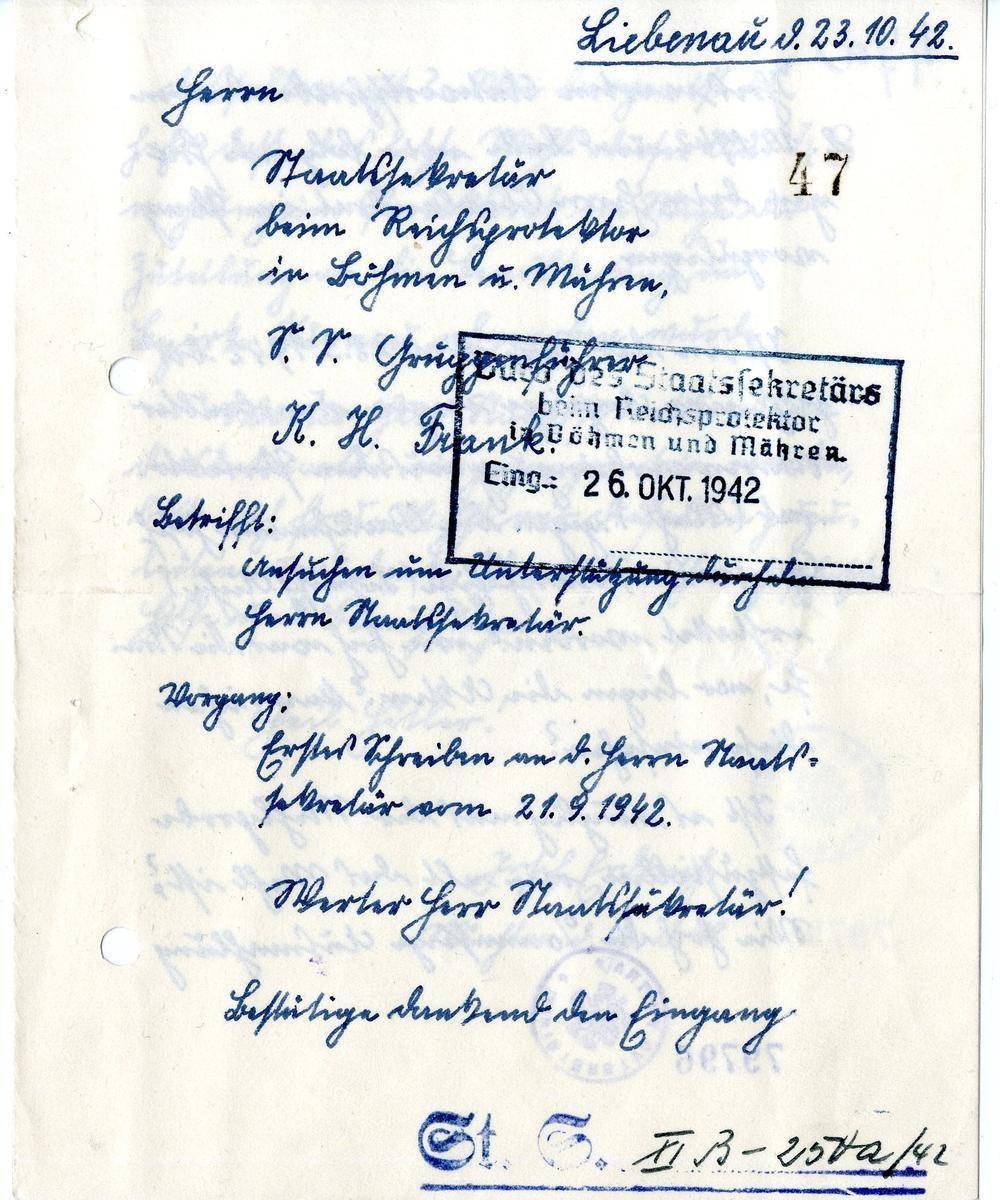 Liebenau d. 23.10.42.
Herrn
47
Staatssekretär
beim Reichsprotektor
in Böhmen u. Mähren,
S. S. Gruppenführer
K. H. Frank.
Büro des Staatssekretärs
beim Reichsprotektor
in Böhmen und Mähren.
Eing.: 26. OKT. 1942
Betrifft:
Ansuchen um Unterstützung durch den
Herrn Staatssekretär.
Vorgang:
Erstes Schreiben an d. Herrn Staats-
sekretär vom 21.9.1942.
Werter Herr Staatssekretär!
Bestätige dankend den Eingang
79796
St. S. XI B - 25 a/42